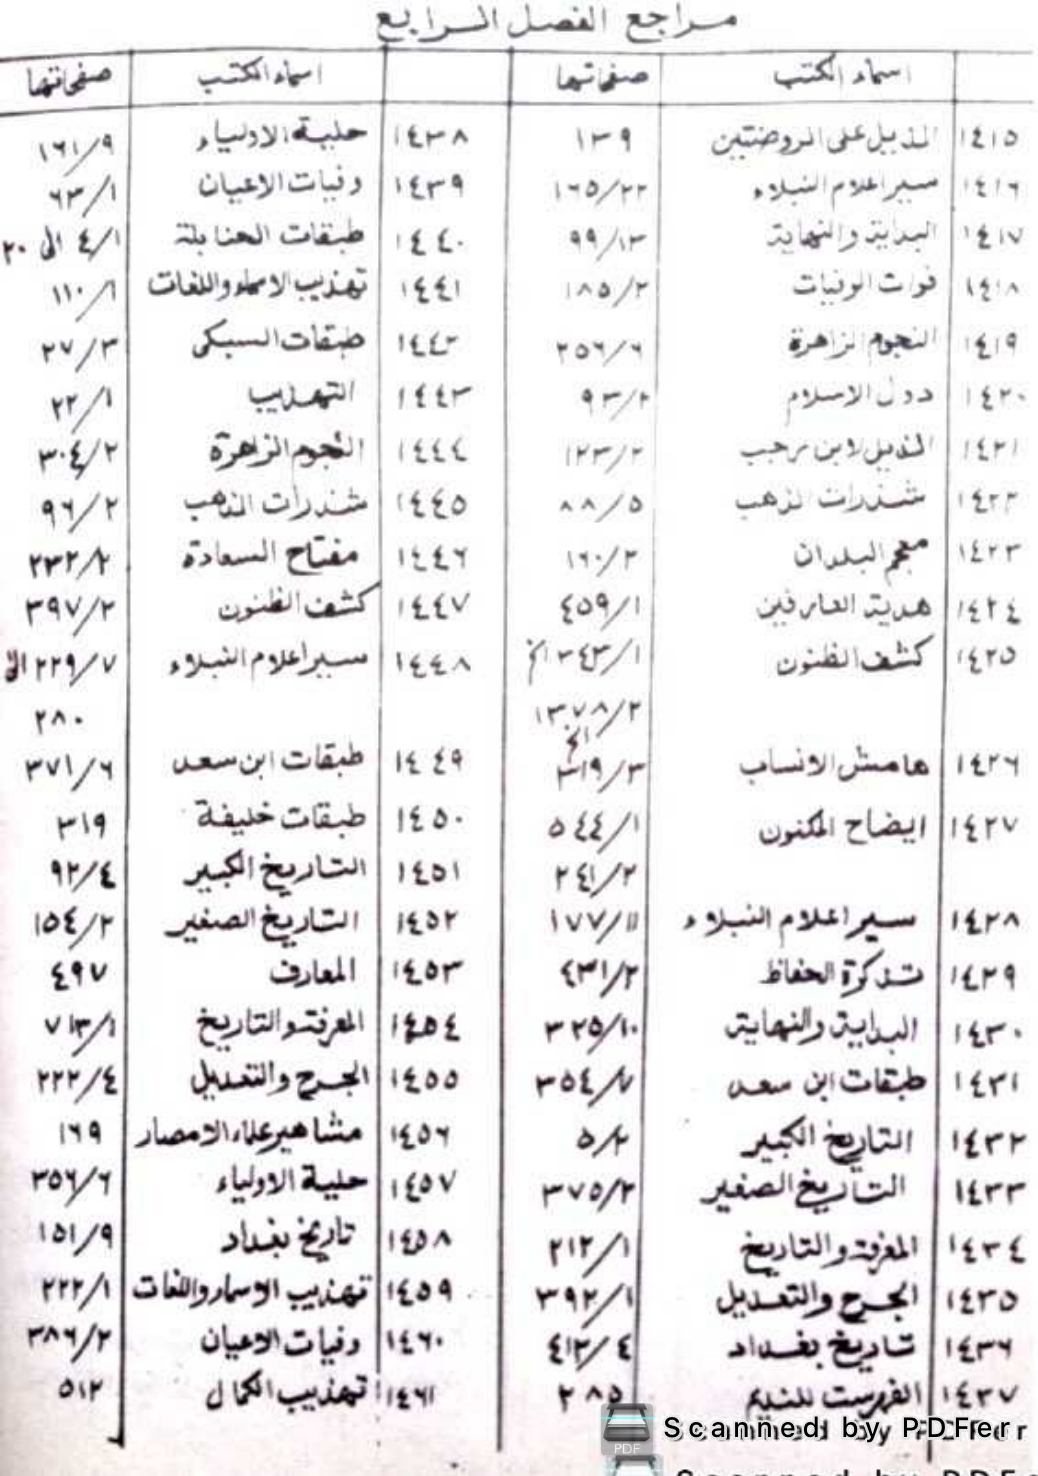 مراجع الفصل الرابع
اسماء الكتب صفحاتها
١٤١٥ الذيل على الروضتين ١٣٩
١٤١٦ سير اعلام النبلاء ١٦٥/٢٢
١٤١٧ البداية والنهاية ٩٩/١٣
١٤١٨ فوات الوفيات ١٨٥/٢
١٤١٩ النجوم الزاهرة ٢٥٦/٦
١٤٢٠ دول الاسلام ٩٣/٢
١٤٢١ الذيل لابن رجب ١٢٣/٢
١٤٢٢ شذرات الذهب ٨٨/٥
١٤٢٣ معجم البلدان ١٦٠/٢
١٤٢٤ هدية العارفين ٤٥٩/١
١٤٢٥ كشف الظنون ٣٤٣/١ الخ
١٣٧٨/٢ الخ
١٤٢٦ هامش الانساب ٣١٩/٣
١٤٢٧ ايضاح المكنون ٥٤٤/١
٢٤١/٢
١٤٢٨ سير اعلام النبلاء ١٧٧/١١
١٤٢٩ تذكرة الحفاظ ٤٣١/٢
١٤٣٠ البداية والنهاية ٣٢٥/١٠
١٤٣١ طبقات ابن سعد ٣٥٤/٧
١٤٣٢ التاريخ الكبير ٥/٢
١٤٣٣ التاريخ الصغير ٣٧٥/٢
١٤٣٤ المعرفة والتاريخ ٢١٢/١
١٤٣٥ الجرح والتعديل ٣٩٢/١
١٤٣٦ تاريخ بغداد ٤١٢/٤
١٤٣٧ الفهرست للنديم ٢٨٥
اسماء الكتب صفحاتها
١٤٣٨ حلية الاولياء ١٦١/٩
١٤٣٩ وفيات الاعيان ٦٣/١
١٤٤٠ طبقات الحنابلة ٤/١ الى ٢٠
١٤٤١ تهذيب الاسماء واللغات ١١٠/١
١٤٤٢ طبقات السبكى ٢٧/٣
١٤٤٣ التهذيب ٢٢/١
١٤٤٤ النجوم الزاهرة ٣٠٤/٢
١٤٤٥ شذرات الذهب ٩٦/٢
١٤٤٦ مفتاح السعادة ٢٣٢/٢
١٤٤٧ كشف الظنون ٣٩٧/٢
١٤٤٨ سير اعلام النبلاء ٢٢٩/٧ الى
٢٨٠
١٤٤٩ طبقات ابن سعد ٣٧١/٦
١٤٥٠ طبقات خليفة ٣١٩
١٤٥١ التاريخ الكبير ٩٢/٤
١٤٥٢ التاريخ الصغير ١٥٤/٢
١٤٥٣ المعارف ٤٩٧
١٤٥٤ المعرفة والتاريخ ٧١٣/١
١٤٥٥ الجرح والتعديل ٢٢٢/٤
١٤٥٦ مشاهير علماء الامصار ١٦٩
١٤٥٧ حلية الاولياء ٣٥٦/٦
١٤٥٨ تاريخ بغداد ١٥١/٩
١٤٥٩ تهذيب الاسماء واللغات ٢٢٢/١
١٤٦٠ وفيات الاعيان ٣٨٦/٢
١٤٦١ تهذيب الكمال ٥١٢
PDF
Scanned by PDFer